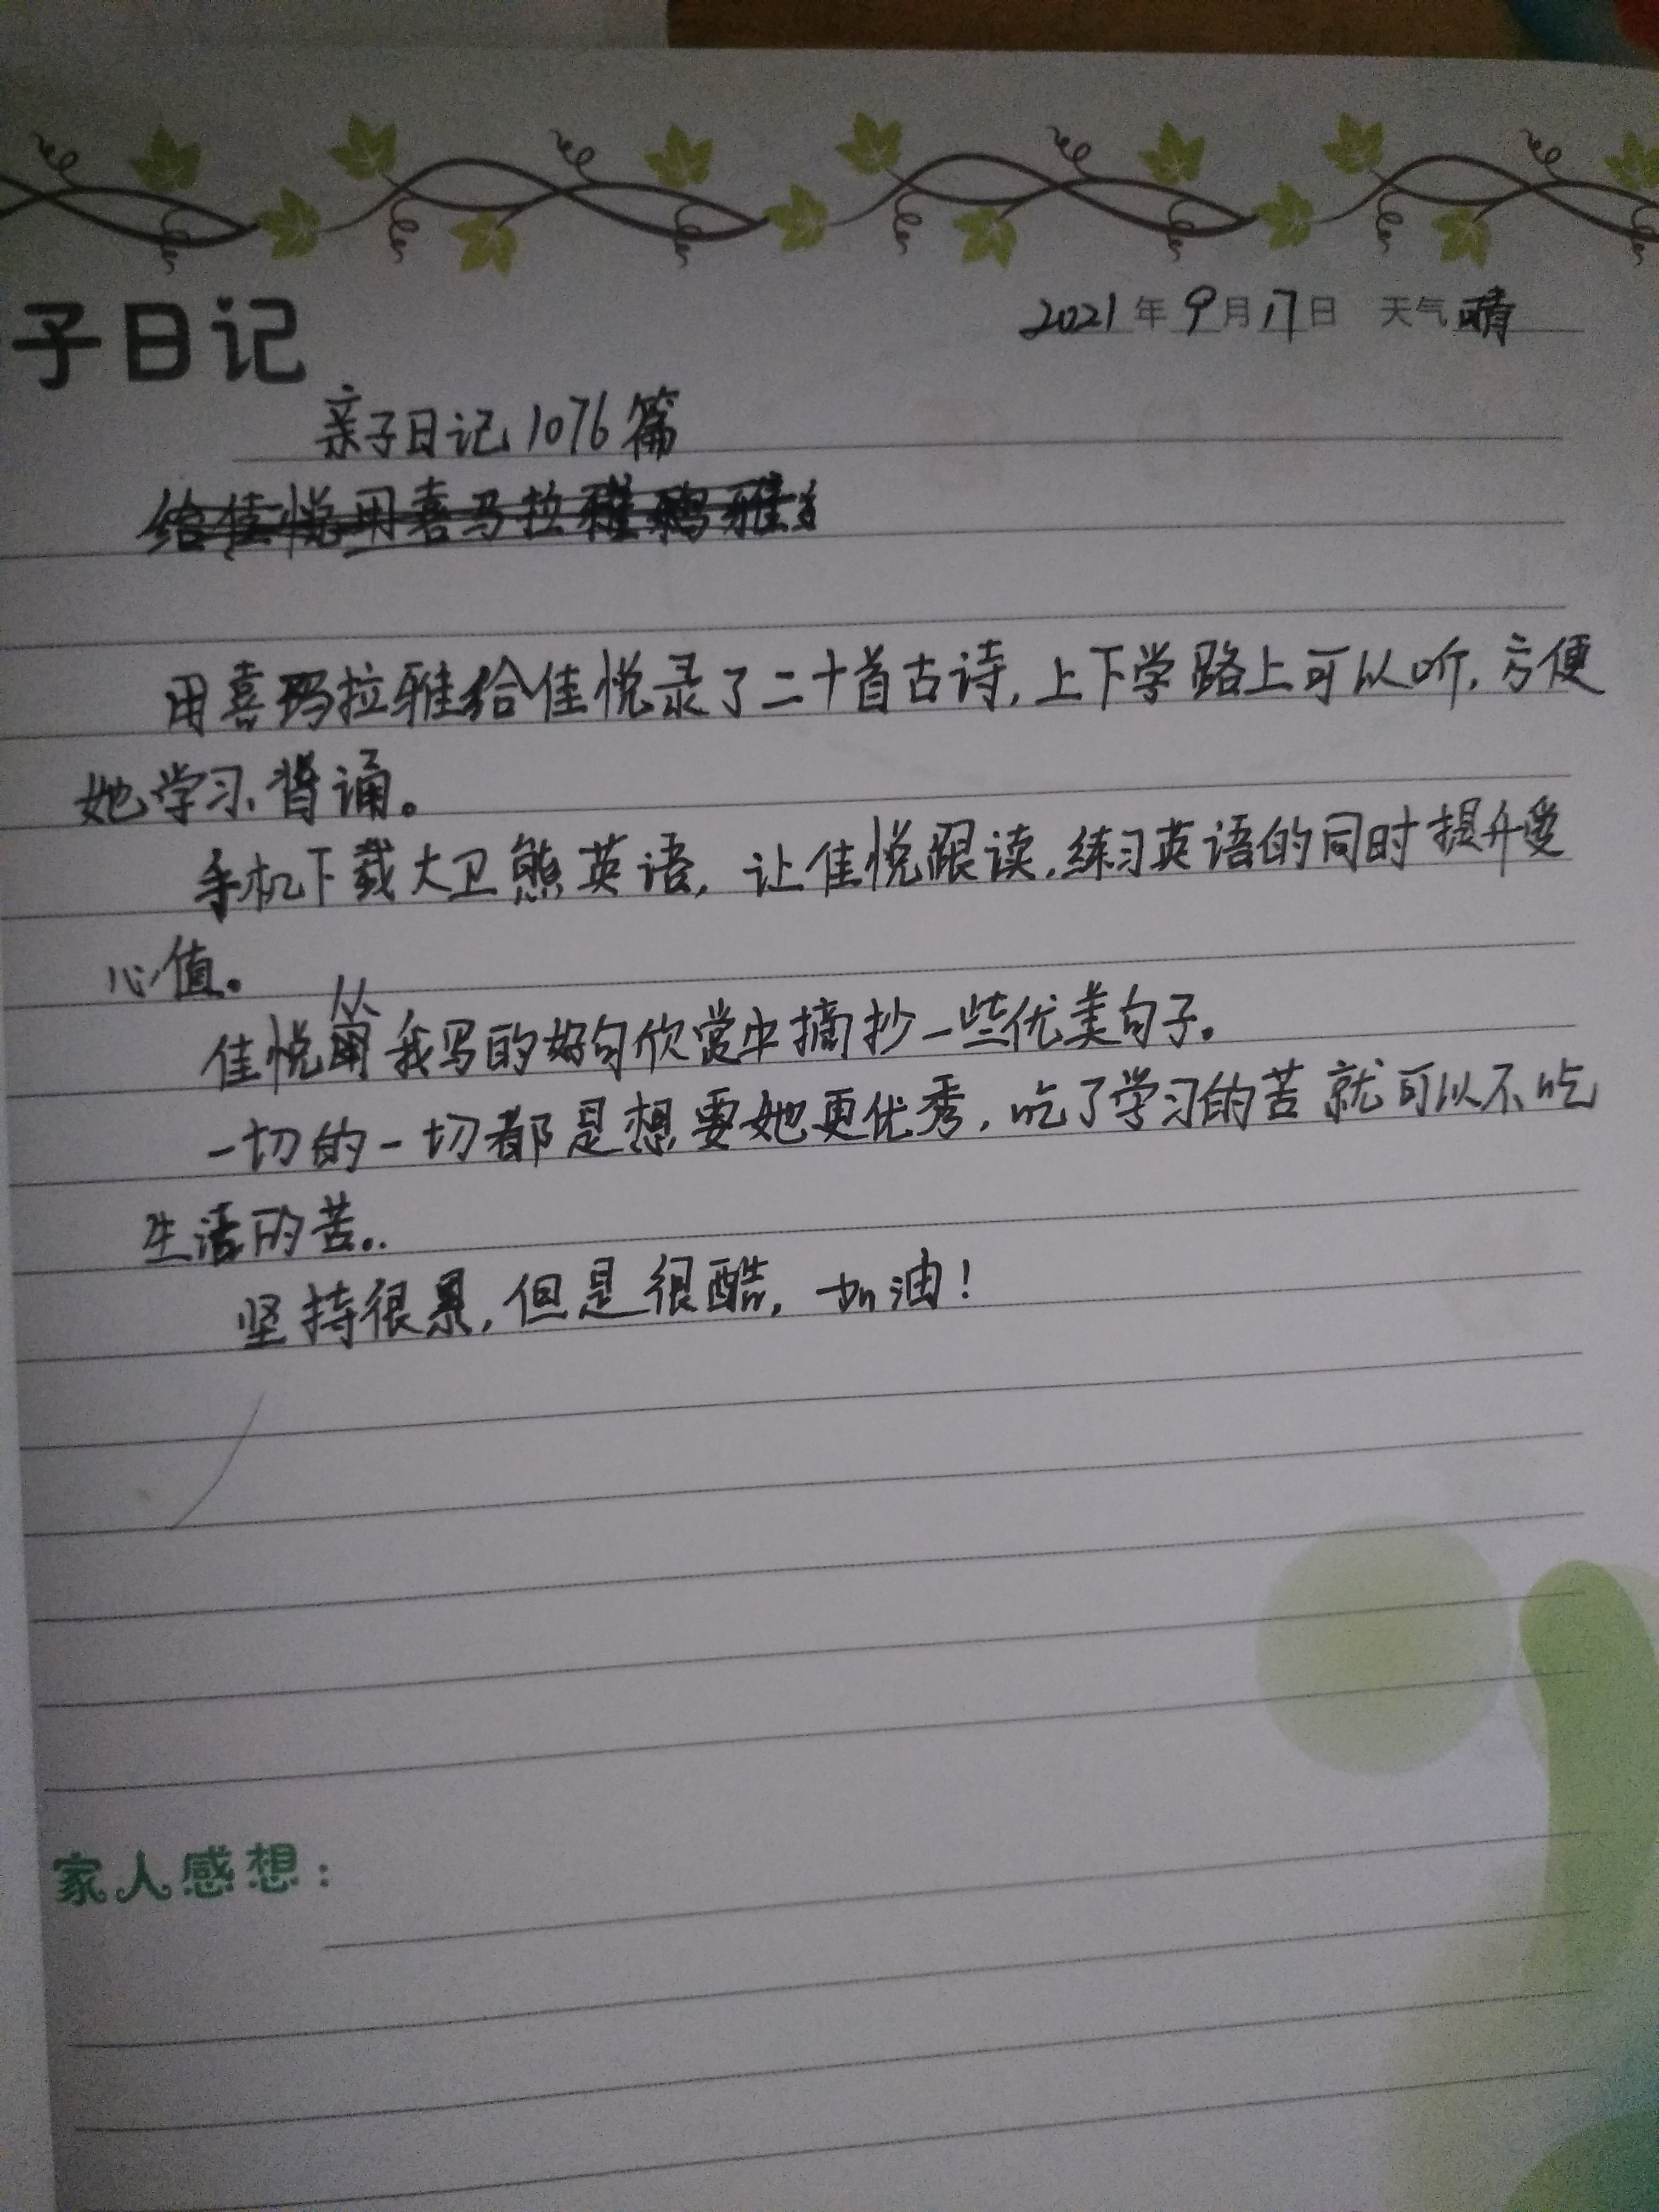 子日记
2021年9月17日 天气晴
亲子日记1076篇
给佳悦用喜马拉雅
用喜玛拉雅给佳悦录了二十首古诗,上下学路上可以听,方便
她学习、背诵。
手机下载大卫熊英语,让佳悦跟读,练习英语的同时提升爱
心值。
佳悦从我写的好句欣赏中摘抄一些优美句子。
一切的一切都是想要她更优秀,吃了学习的苦就可以不吃
生活的苦..
坚持很累,但是很酷,加油!
家人感想: